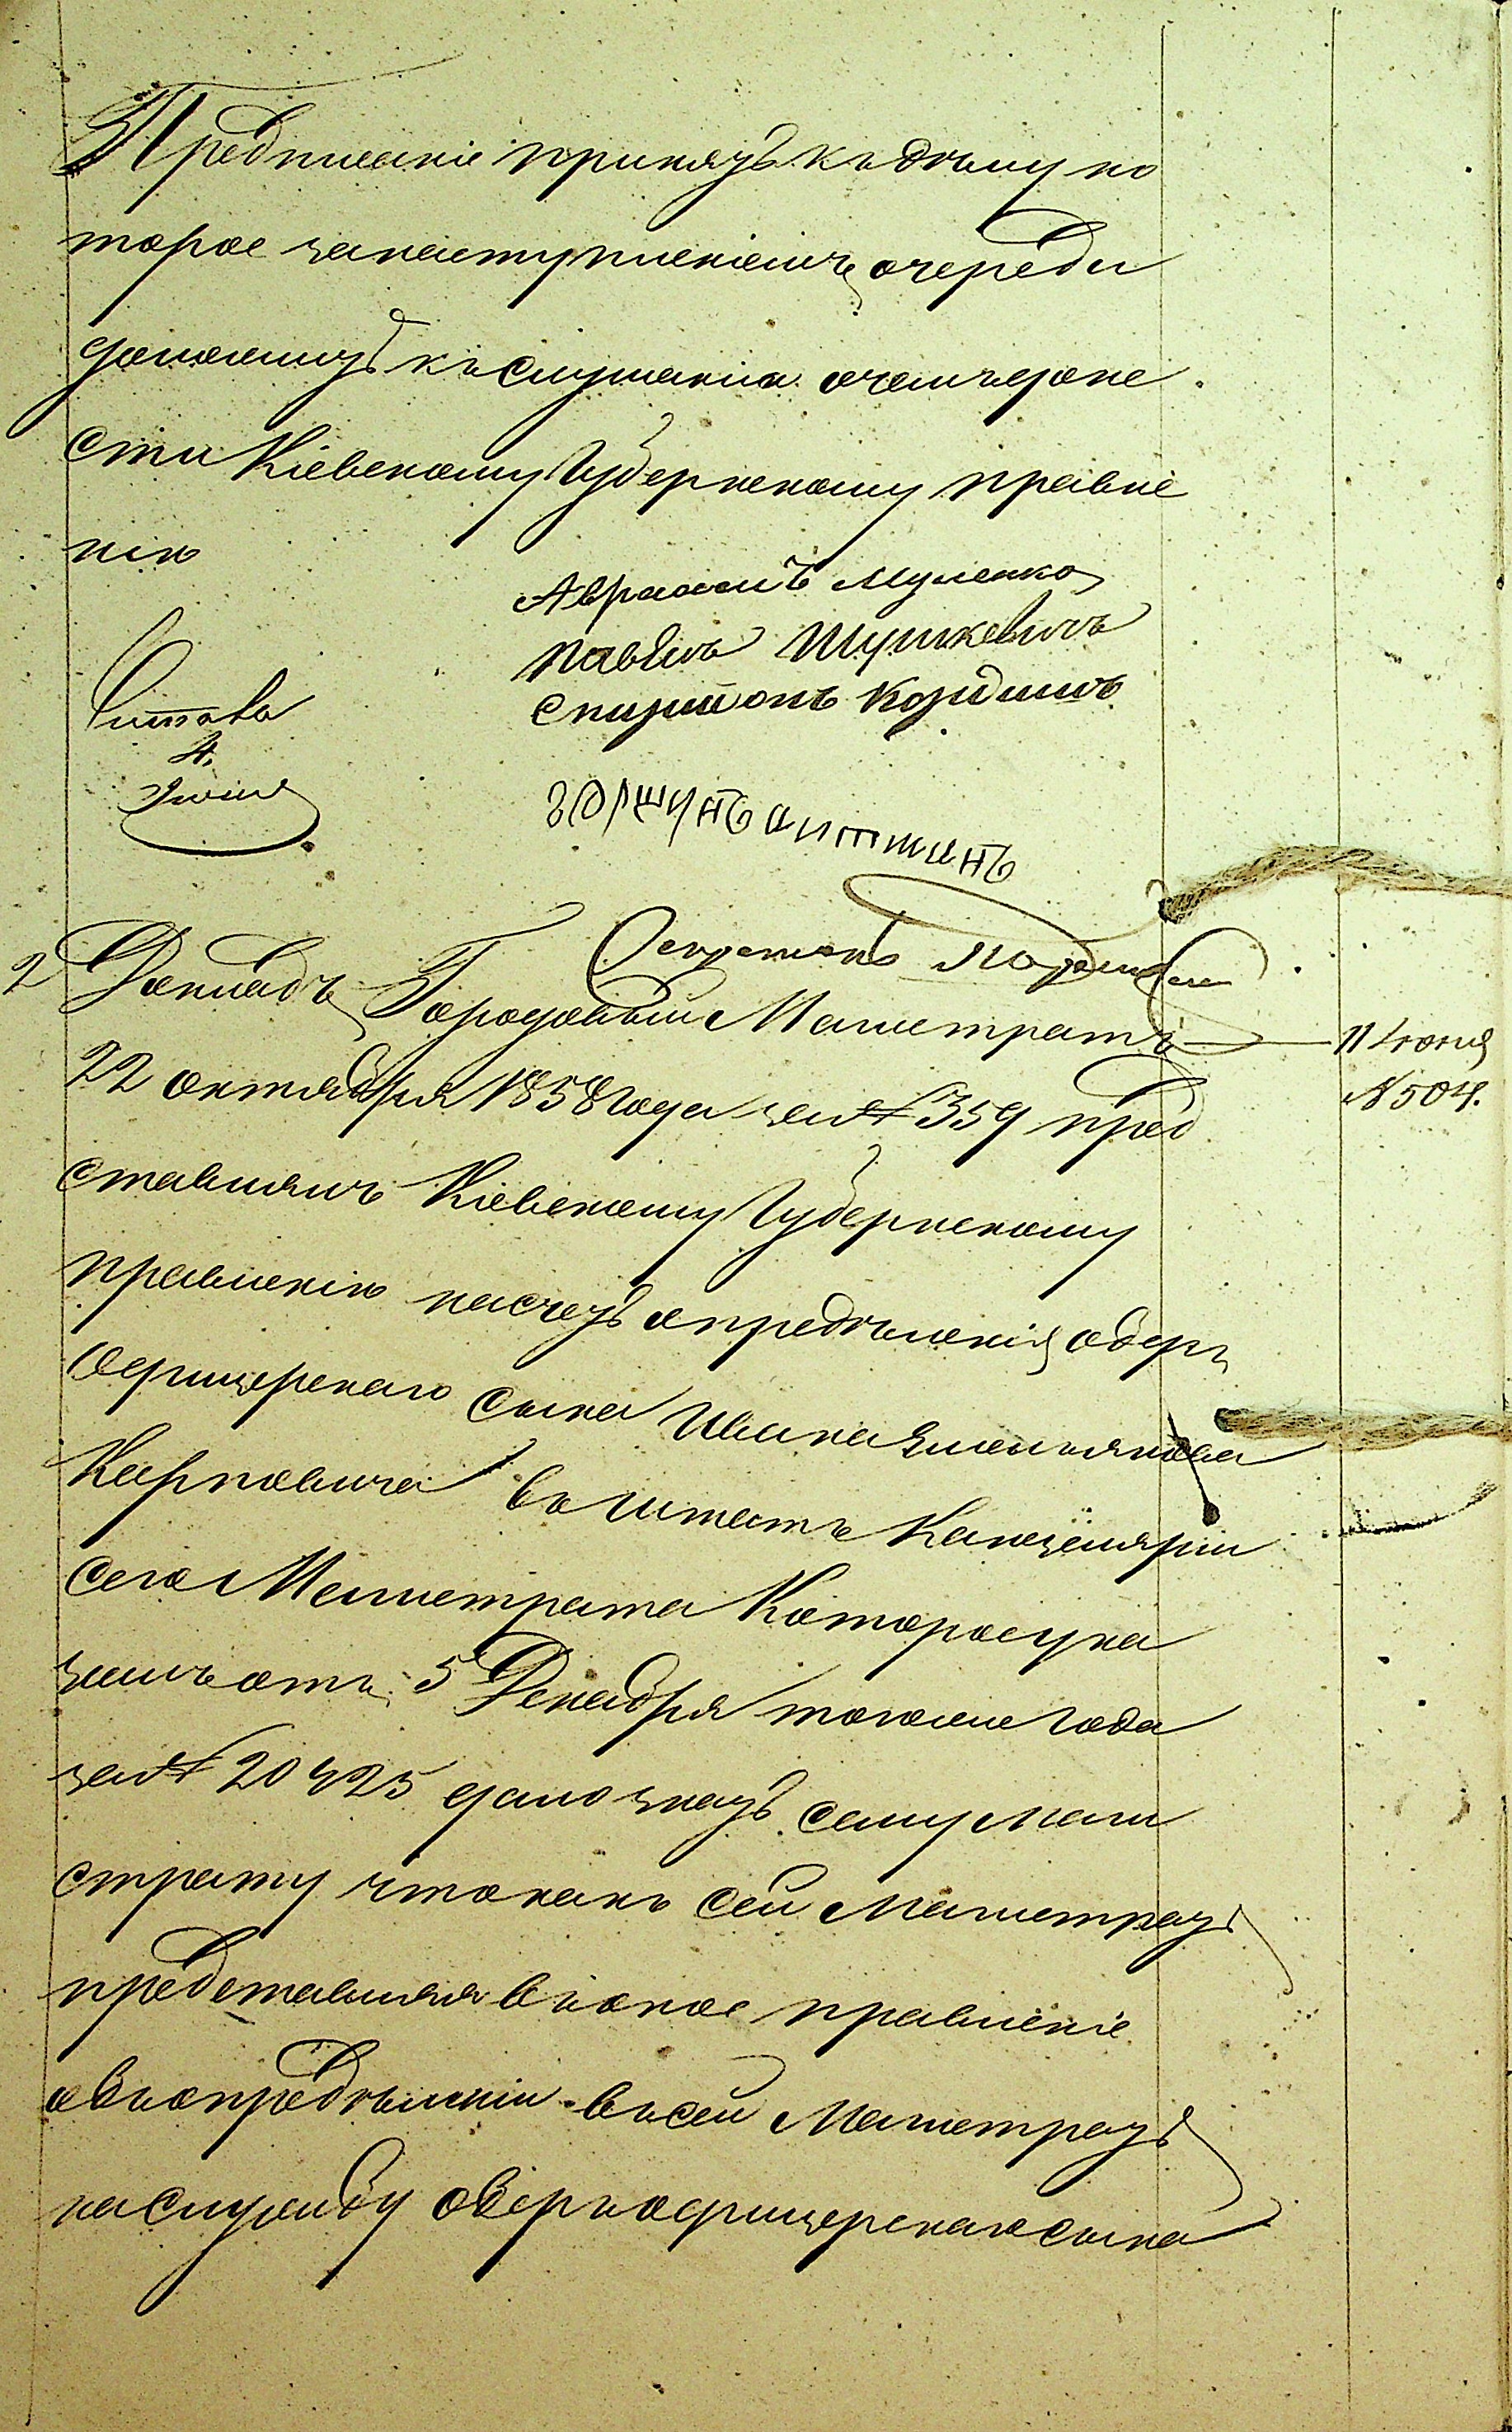 Предписаніе пріняуъ къ дѣлу ко
торое за наступленіемъ очереди
доложитъ къ слушанію о чемъ доне
сти Кіевскому Губернскому правле
нію
Авраамъ Муленко
Павелъ Шушкевичъ
Спиридонъ
Читала
4.
Іюня
Секретарь
2 Докладъ. Городовый Магистратъ
11 Іюня
22 октября 1858 года за № 359 пред
№ 504.
ставлялъ Кіевскому Губернскому
правленію насчетъ опредѣленія оберъ
офицерскаго сына Ивана Емельянова
Карповича въ штатъ Канцеляріи
сего Магистрата Которое ука
зомъ отъ 5 Декабря того же года
за № 20425 дало знать сему Маги
страту что какъ сей Магистратъ
представляя въ оное правленіе
объ опредѣленіи въ сей Магистратъ
на службу оберъ офицерскаго сына